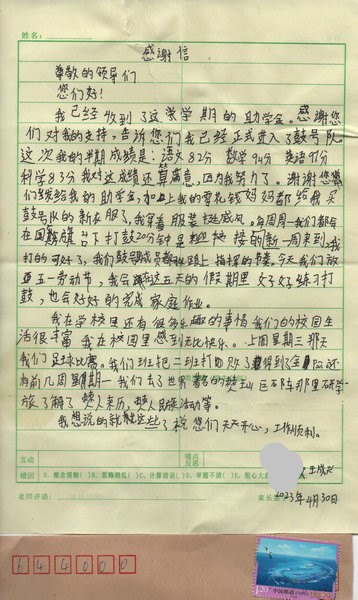 姓名：
感谢信
尊敬的领导们
您们好！
我已经收到了这学期的助学金。感谢您
们对我的支持，告诉您们我已经正式进入了鼓号队
这次我的半期成绩是：语文82分 数学94分 英语91分
科学83分我对这成绩还算满意，因为我努力了。谢谢您
们给我的助学金，加上我的零花钱妈妈都给我买
鼓号队的新衣服了，我穿着服装挺威风。每周周一我们都会
在国旗台下打鼓20分钟 迎接的新一周来到，我
打的可好了，我们鼓号成员都 跟上指挥的节奏。今天我们放
五一劳动节，我会 在这五天的假期里好好练习打
鼓，也会好好的完成家庭作业。
我在学校里还有很多乐趣的事情我们的校园生
活很丰富我在校园里感到无比快乐。上周星期三那天
我们足球比赛。我们班把二班打败了 得到了金 还
有前几周星期一我们去了世界著名的僰王山 那里研学
旅了解了僰人来历，僰人 活动等。
我想说的就 这些了祝您们天天开心，工作顺利。
2023年4月30日
互动
错点
反思
错因
A、概念模糊（ ）B、思路错乱（ ）C、计算错误（ ）D、审题不清（ ）E、粗心大意
老师评语：
家长签
644000
1.20元
中国邮政